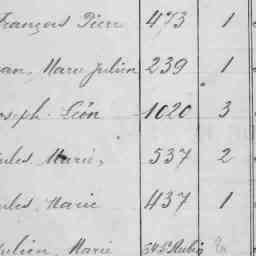 François Pierre 473 1
ean, Marie Julien 239 1
oseph Léon 1020 3
ules, Marie, 537 2
ules, Marie 437 1
ulien, Marie